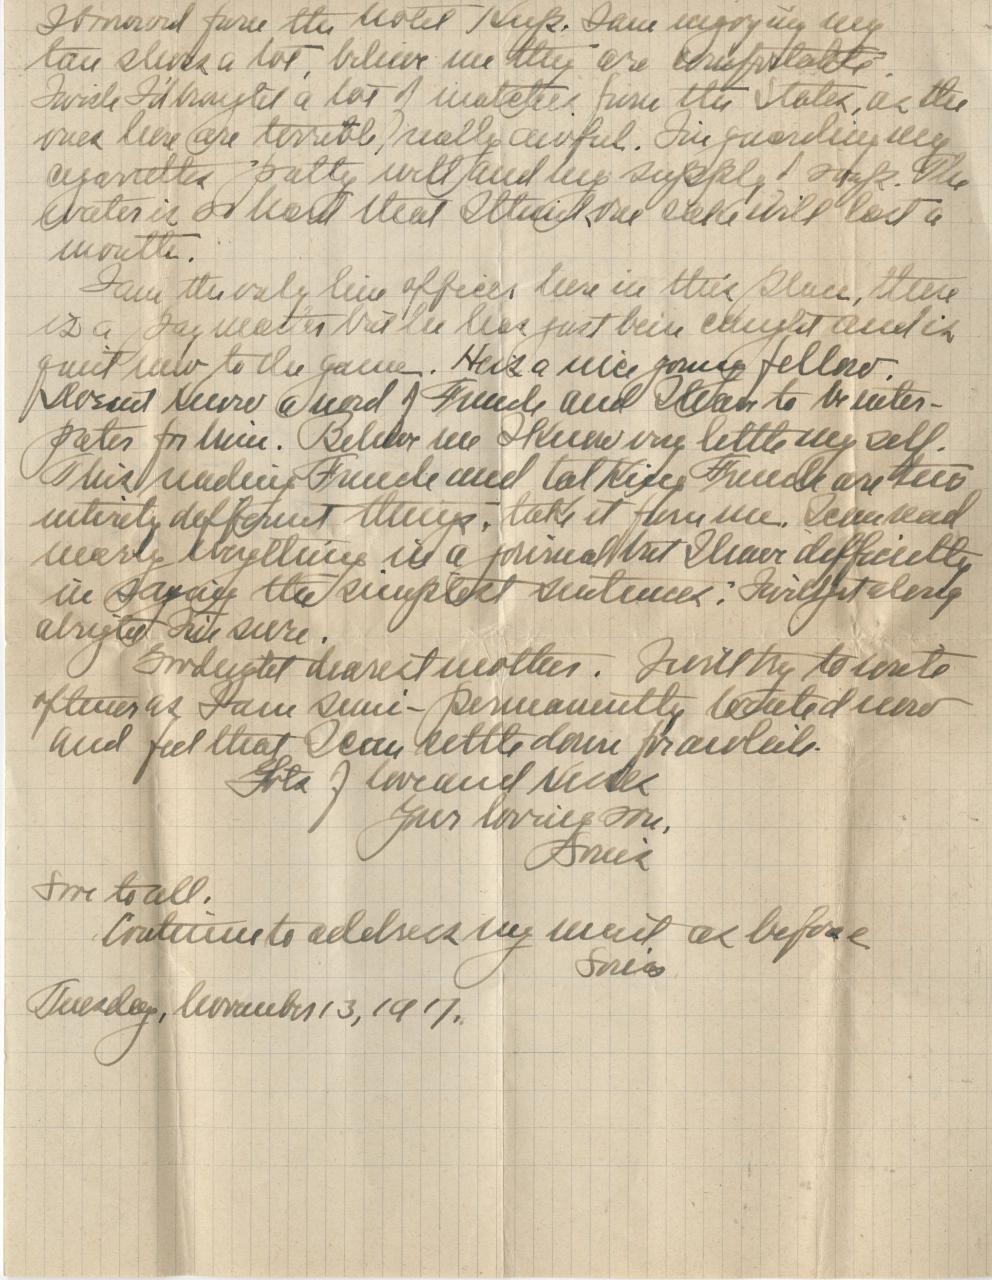 I borrowed from the Hotel I am enjoying my
tan shoes a lot, believe me they are comfortable.
I wish I'd brought a lot of matches from the States, as the
ones here are terrible, really awful. I'm guarding my
cigarettes pretty well and my supply of soap. The
water is so hard that I think one cake will last a
month.
I am the only line officer here in this place, there
is a Paymaster but he has just been caught and is
quite new to the game. He is a nice young fellow.
Doesnt know a word of French and I have to be inter-
preter for him. Believe me I know very little my self.
This reading French and talking French are two
entirely different things, take it from me. I can read
nearly everything in a journal but I have difficulty
in saying the simplest sentences; I will get along
alright I'm sure.
Goodnight dearest mother. I will try to write
oftener as I am semi-permanently located now
and feel that I can settle down for awhile.
Lots of love and kisses
Your loving son,
Louis
Love to all.
Continue to address my mail as before
Louis
Tuesday, November 13, 1917.